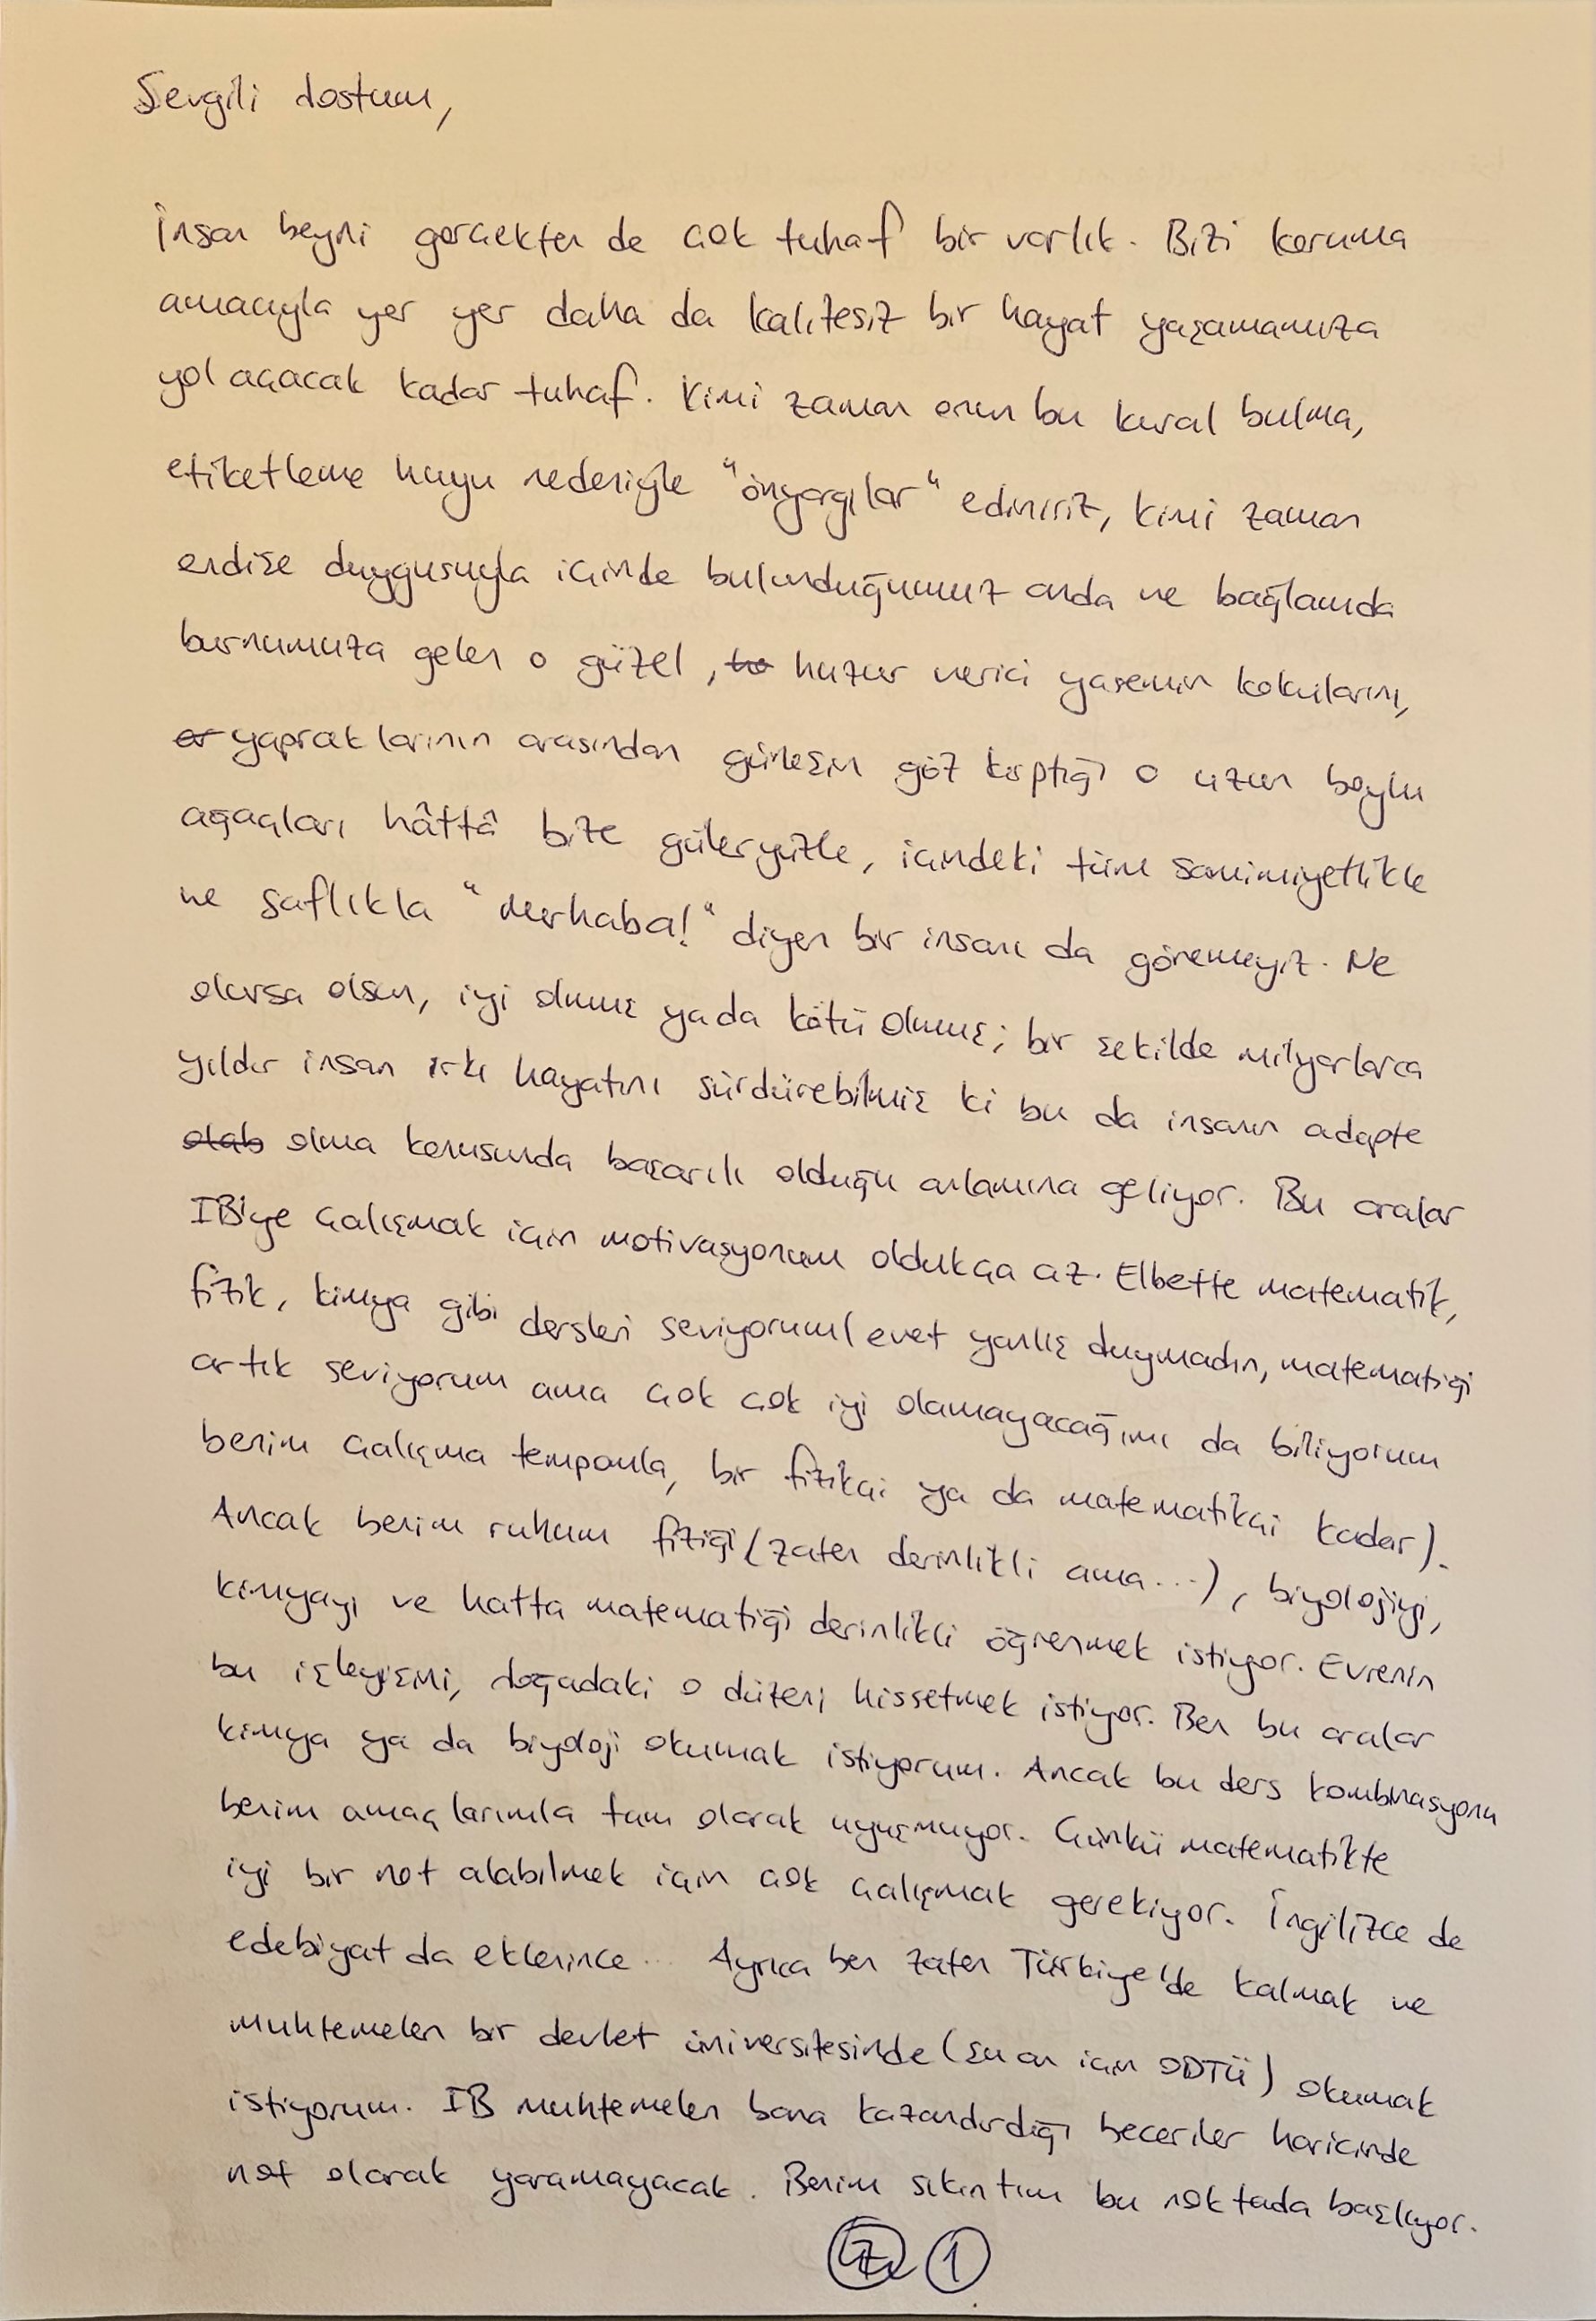 Sevgili dostum,
İnsan beyni gerçekten de çok tuhaf bir varlık. Bizi koruma
amacıyla yer yer daha da kalitesiz bir hayat yaşamamıza
yol açacak kadar tuhaf. Kimi zaman onun bu kural bulma,
etiketleme huyu nedeniyle "önyargılar" ediniriz, kimi zaman
endişe duygusuyla içinde bulunduğumuz anda ve bağlamda
burnumuza gelen o güzel, huzur verici yasemin kokularını,
yapraklarının arasından güneşin göz kırptığı o uzun boylu
ağaçları hâttâ bize güleryüzle, içindeki tüm samimiyetlikle
ve saflıkla "Merhaba!" diyen bir insanı da göremeyiz. Ne
olursa olsun, iyi olmuş yada kötü olmuş; bir şekilde milyarlarca
yıldır insan ırkı hayatını sürdürebilmiş ki bu da insanın adapte
olma konusunda başarılı olduğu anlamına geliyor. Bu aralar
IB'ye çalışmak için motivasyonum oldukça az. Elbette matematik,
fizik, kimya gibi dersleri seviyorum (evet yanlış duymadın, matematiği
artık seviyorum ama çok çok iyi olamayacağımı da biliyorum
benim çalışma tempomla, bir fizikçi ya da matematikçi kadar).
Ancak benim ruhum fiziği (zaten derinlikli ama...), biyolojiyi,
kimyayı ve hatta matematiği derinlikli öğrenmek istiyor. Evrenin
bu işleyişini, doğadaki o düzeni hissetmek istiyor. Ben bu aralar
kimya ya da biyoloji okumak istiyorum. Ancak bu ders kombinasyonu
benim amaçlarımla tam olarak uyuşmuyor. Çünkü matematikte
iyi bir not alabilmek için çok çalışmak gerekiyor. İngilizce de
edebiyat da eklenince... Ayrıca ben zaten Türkiye'de kalmak ve
muhtemelen bir devlet üniversitesinde (şu an için ODTÜ) okumak
istiyorum. IB muhtemelen bana kazandırdığı beceriler haricinde
not olarak yaramayacak. Benim sıkıntım bu noktada başlıyor.
1